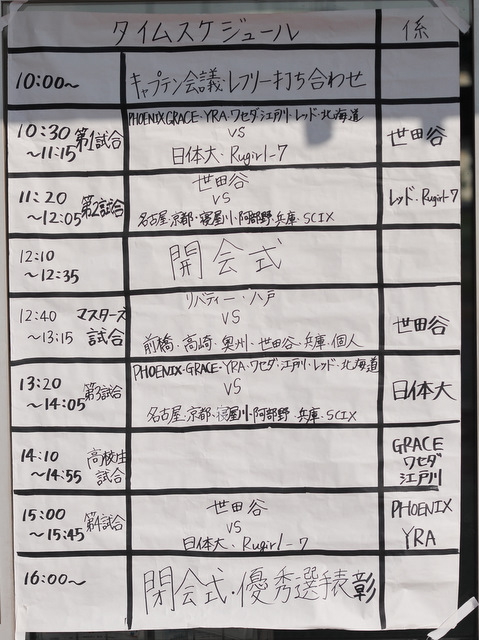 タイムスケジュール 係
10:00～ キャプテン会議・レフリー打ち合わせ
PHOENIX GRACE・YRA・ワセダ江戸川・レッド・北海道
10:30 第1試合 VS 世田谷
～11:15 日体大・Rugirl-7
11:20 世田谷
第2試合 VS レッド・Rugirl-7
～12:05 名古屋・京都・寝屋川・阿部野・兵庫・SCIX
12:10 開会式
～12:35
12:40 マスターズ リバティー・八戸
～13:15 試合 VS 世田谷
前橋・高崎・奥州・世田谷・兵庫・個人
PHOENIX・GRACE・YRA・ワセダ・江戸川・レッド・北海道
13:20 第3試合 VS 日体大
～14:05 名古屋・京都・寝屋川・阿部野・兵庫・SCIX
14:10 高校生 GRACE
～14:55 試合 ワセダ
江戸川
15:00 第4試合 世田谷 PHOENIX
～15:45 VS YRA
日体大・Rugirl-7
16:00～ 閉会式・優秀選手表彰